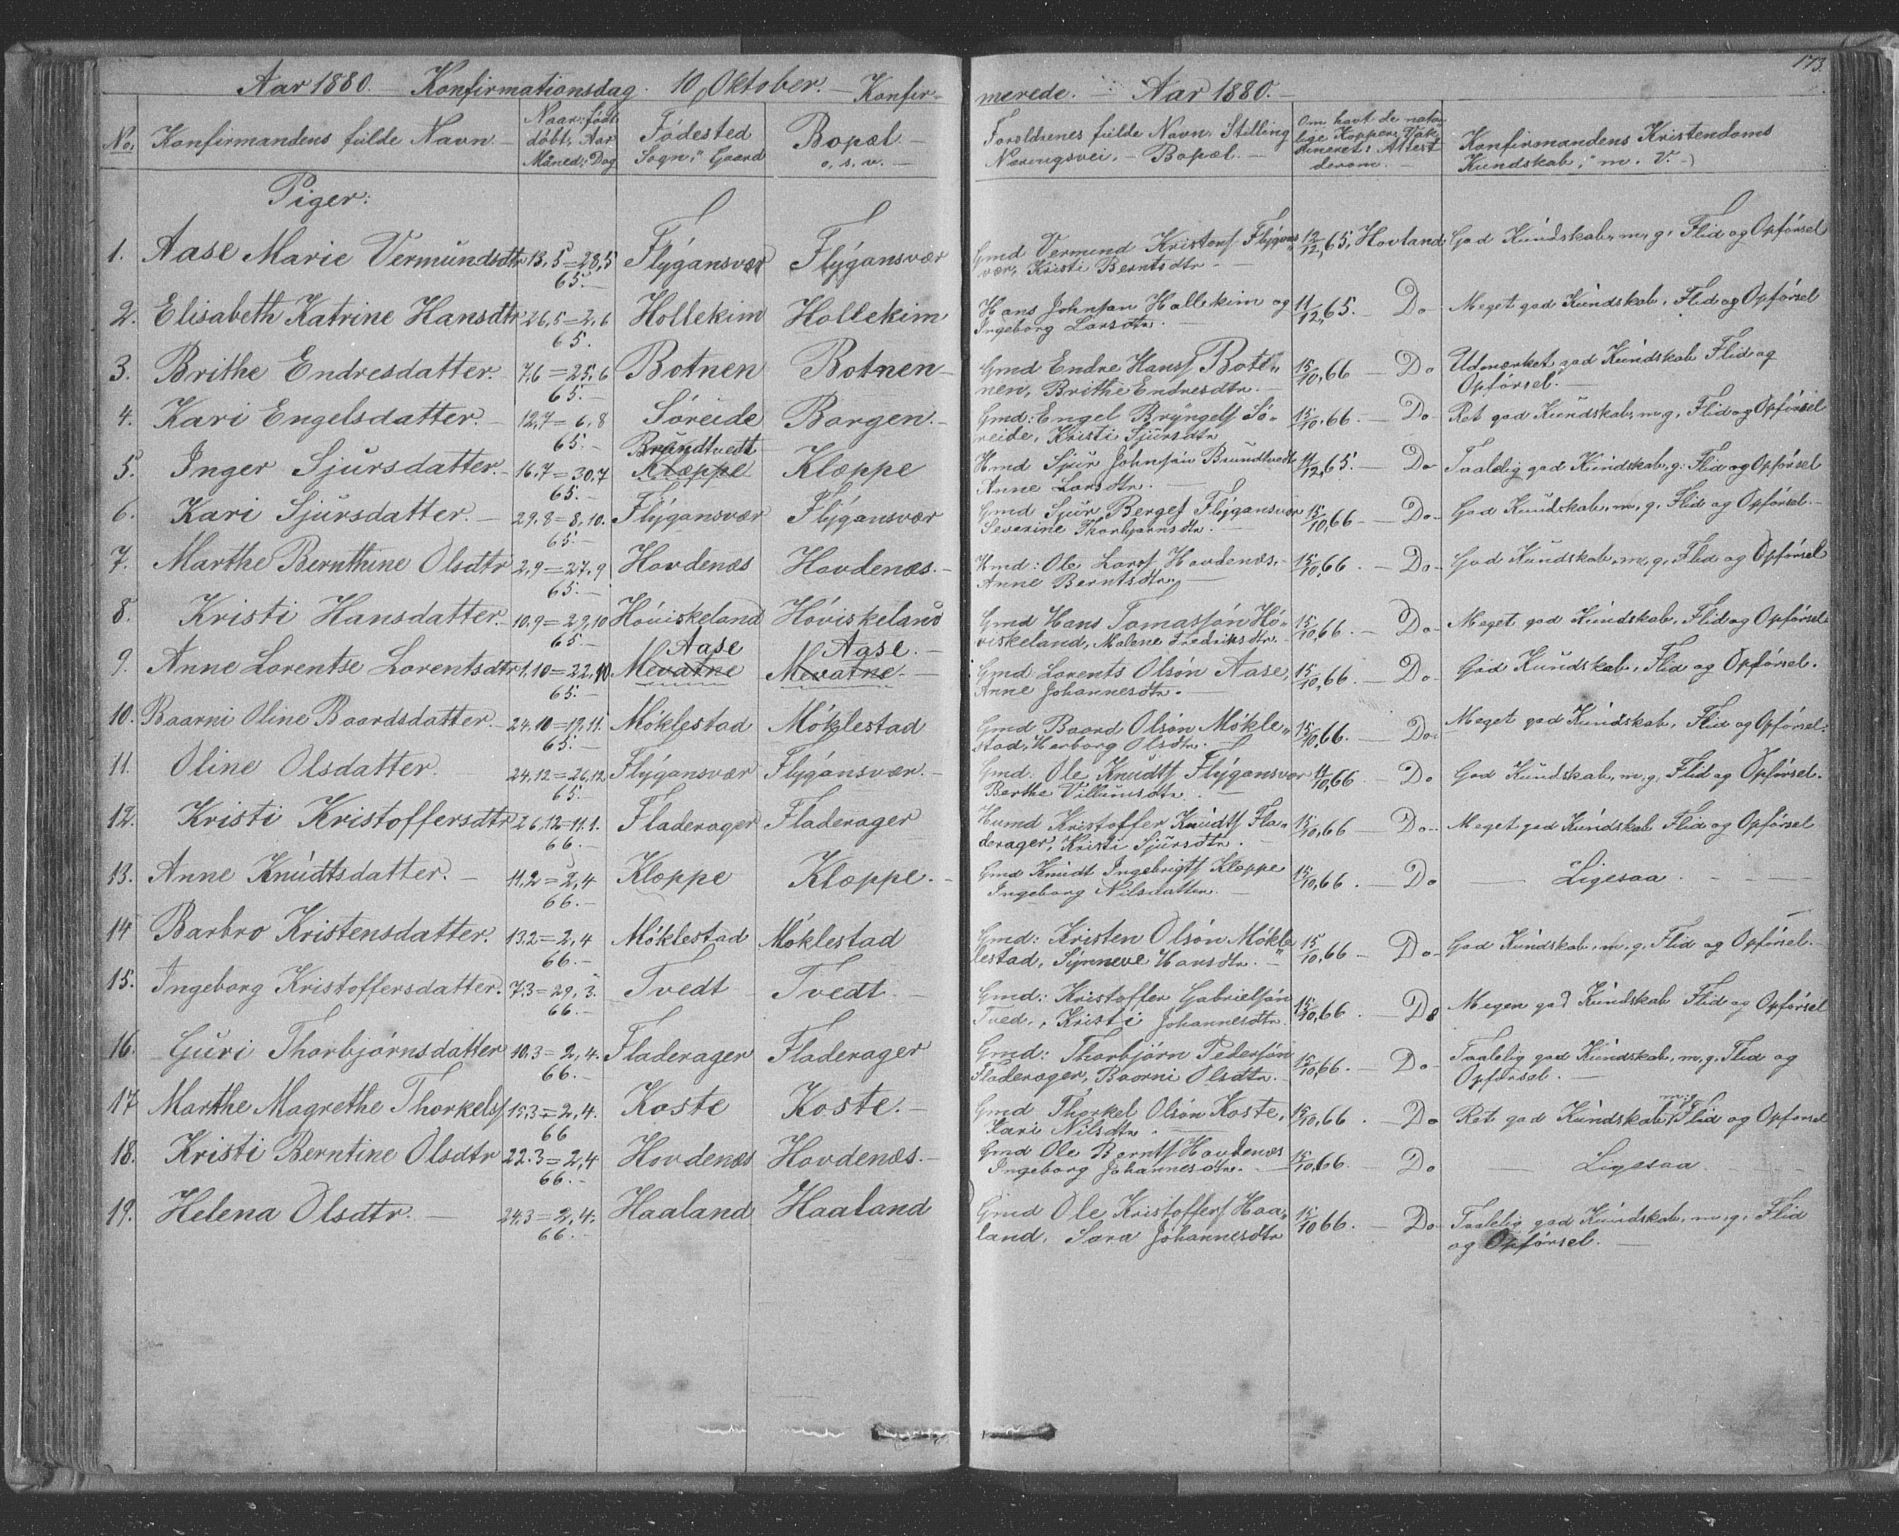 173.
Aar 1880. — Konfirmationsdag. 10, Oktober. — Konfir- merede. — Aar 1880. —
No. Konfirmandens fulde Navn — Naar: født døbt, Aar Maned; Dag Fødested Sogn, " Gaard Bopæl — o, s, v. — Foreldrenes fulde Navn, Stilling Næringsvei, — Bopæl. — Om havt de natu- lige Kopper, Vak- sineret; Attest derom. — Konfirmandens Kristendoms Kundskab, " m. V. —
Piger:
1. Aase Marie Vermundsdtr 13,5 = 28,5 65. — Flygansvær Flygansvær Gmd Vermund Kristens Flygans vær, Kristi Berntsdtr. — 12/12,65, Hovland. God Kundskab, m, g, Flid og Opførsel
2. Elisabeth Katrine Hansdtr 26,5 = 2,6 65. Hollekim Hollekim Hans Johnsen Hollekim og Ingeborg Larsdtr. — 11/12,65. — Do Meget god Kundskab, Flid og Opførsel
3. Brithe Endresdatter. 7,6 = 25,6 65. — Botnen Botnen — Gmd Endre Hanss Bot- nen, Brithe Endresdtr. — 15/10,66 — Do Udmærket god Kundskab Flid og Opførsel. —
4. Kari Engelsdatter. — 12,7 = 6,8 65. — Søreide Borgen. — Gmd: Engel Bryngels Sø- reide, Kristi Sjursdtr 15/10,66. — Do Ret god Kundskab, m, g, Flid og Opførsel
5. Inger Sjursdatter. — 16,7 = 30,7 65. — Brundtvedt Klæppe Klæppe Hmd Sjur Johnsøn Brundtvedt Anne Larsdtr. — 11/12,65. Do Taalelig god Kundskab, g, Flid og Opførsel
6. Kari Sjursdatter. — 29,8 = 8,10. 65. — Flygansvær Flygansvær Gmd Sjur Berges Flygansvær Severine Thorbjørnsdtr. — 15/10,66 — Do — God Kundskab, m, g, Flid og Opførsel. —
7. Marthe Bernthine Olsdtr 2,9 = 27,9 65. — Hovdenæs Hovdenæs. — Hmd: Ole Larss Hovdenæs, — Anne Berntsdtr. — 15/10,66. — Do — God Kundskab, m, g, Flid og Opførsel
8. Kristi Hansdatter. — 10,9 = 29,10 65. — Høviskeland Høviskeland Gmd Hans Tomassøn Hø- viskeland, Malene Fredriksdtr. — 15/10,66. — Do — Meget god Kundskab, Flid og Opførsel
9. Anne Lorentse Lorentsdtr 1,10 = 22,10 65. — Aase Mevatne Aase. — Mevatne. — Gmd Lorents Olsøn Aase, Anne Johannesdtr. — 15/10,66. — Do — God Kundskab, Flid og Opførsel.
10. Baarni Oline Baardsdatter. — 24,10 = 19,11. 65. — Møklestad Møklestad Gmd Baard Olsøn Møkle- stad, Herborg Olsdtr. 15/10,66. — Do — Meget god Kundskab, Flid og Opførsel.
11. Oline Olsdatter. 24,12 = 26,12 65. — Flygansvær Flygansvær. — Gmd: Ole Knudts Flygansvær Berthe Villumsdtr. — 11/10,66 — Do God Kundskab, m, g, Flid og Opførsel.
12. Kristi Kristoffersdtr 26,12 = 11,1. 66. — Fladerager Fladerager Husmd Kristoffer Knudts Fla- derager, Kristi Sjursdtr. — 15/10,66 — Do — Meget god Kundskab Flid og Opførsel
13. Anne Knudtsdatter. — 11,2 = 2,4 66. — Klæppe Klæppe. — Gmd Knudt Ingebrigts Kleppe Ingeborg Nilsdatter. — 15/10,66. — Do — Ligesaa. —
14 Barbro Kristensdatter. 13,2 = 2,4 66. — Møklestad Møklestad Gmd: Kristen Olsøn Møkle lestad, Synneve Hansdtr. — 15/10,66 — Do — God Kundskab, m, g, Flid og Opførsel. —
15. Ingeborg Kristoffersdatter. 7,3 = 29,3. 66. — Tvedt Tvedt — Gmd: Kristoffer Gabrielsøn Tved., Kristi Johannesdtr 15/10,66. — Do Megen god Kundskab Flid og Opførsel
16. Guri Thorbjørnsdatter 10,3 = 2,4. 66. — Fladerager Fladerager Gmd: Thorbjørn Pedersøn Fladerager, Baarni Olsdtr. — 15/10,66. — Do — Taalelig god Kundskab, m, g, Flid og Opførsel. —
17 Marthe Magrethe Thorkels. 15,3 = 2,4. 66 Koste Koste. — Gmd Thorkel Olsøn Koste, Kari Nilsdtr. — 15/10,66. — Do Ret god Kundskab, m, g, Flid og Opførsel
18. Kristi Berntine Olsdtr 22,3 = 2,4 66. — Hovdenæs Hovdenæs. — Gmd Ole Bernts Hovdenæs Ingeborg Johannesdtr. — 15/10,66. — Do — Ligesaa. —
19. Helena Olsdtr. — 24,3 = 2,4. 66. — Haaland Haaland Gmd Ole Kristoffers Haa- land, Sara Johannesdtr 15/10 66. — Do — Taalelig god Kundskab, m, g, Flid og Opførsel. —